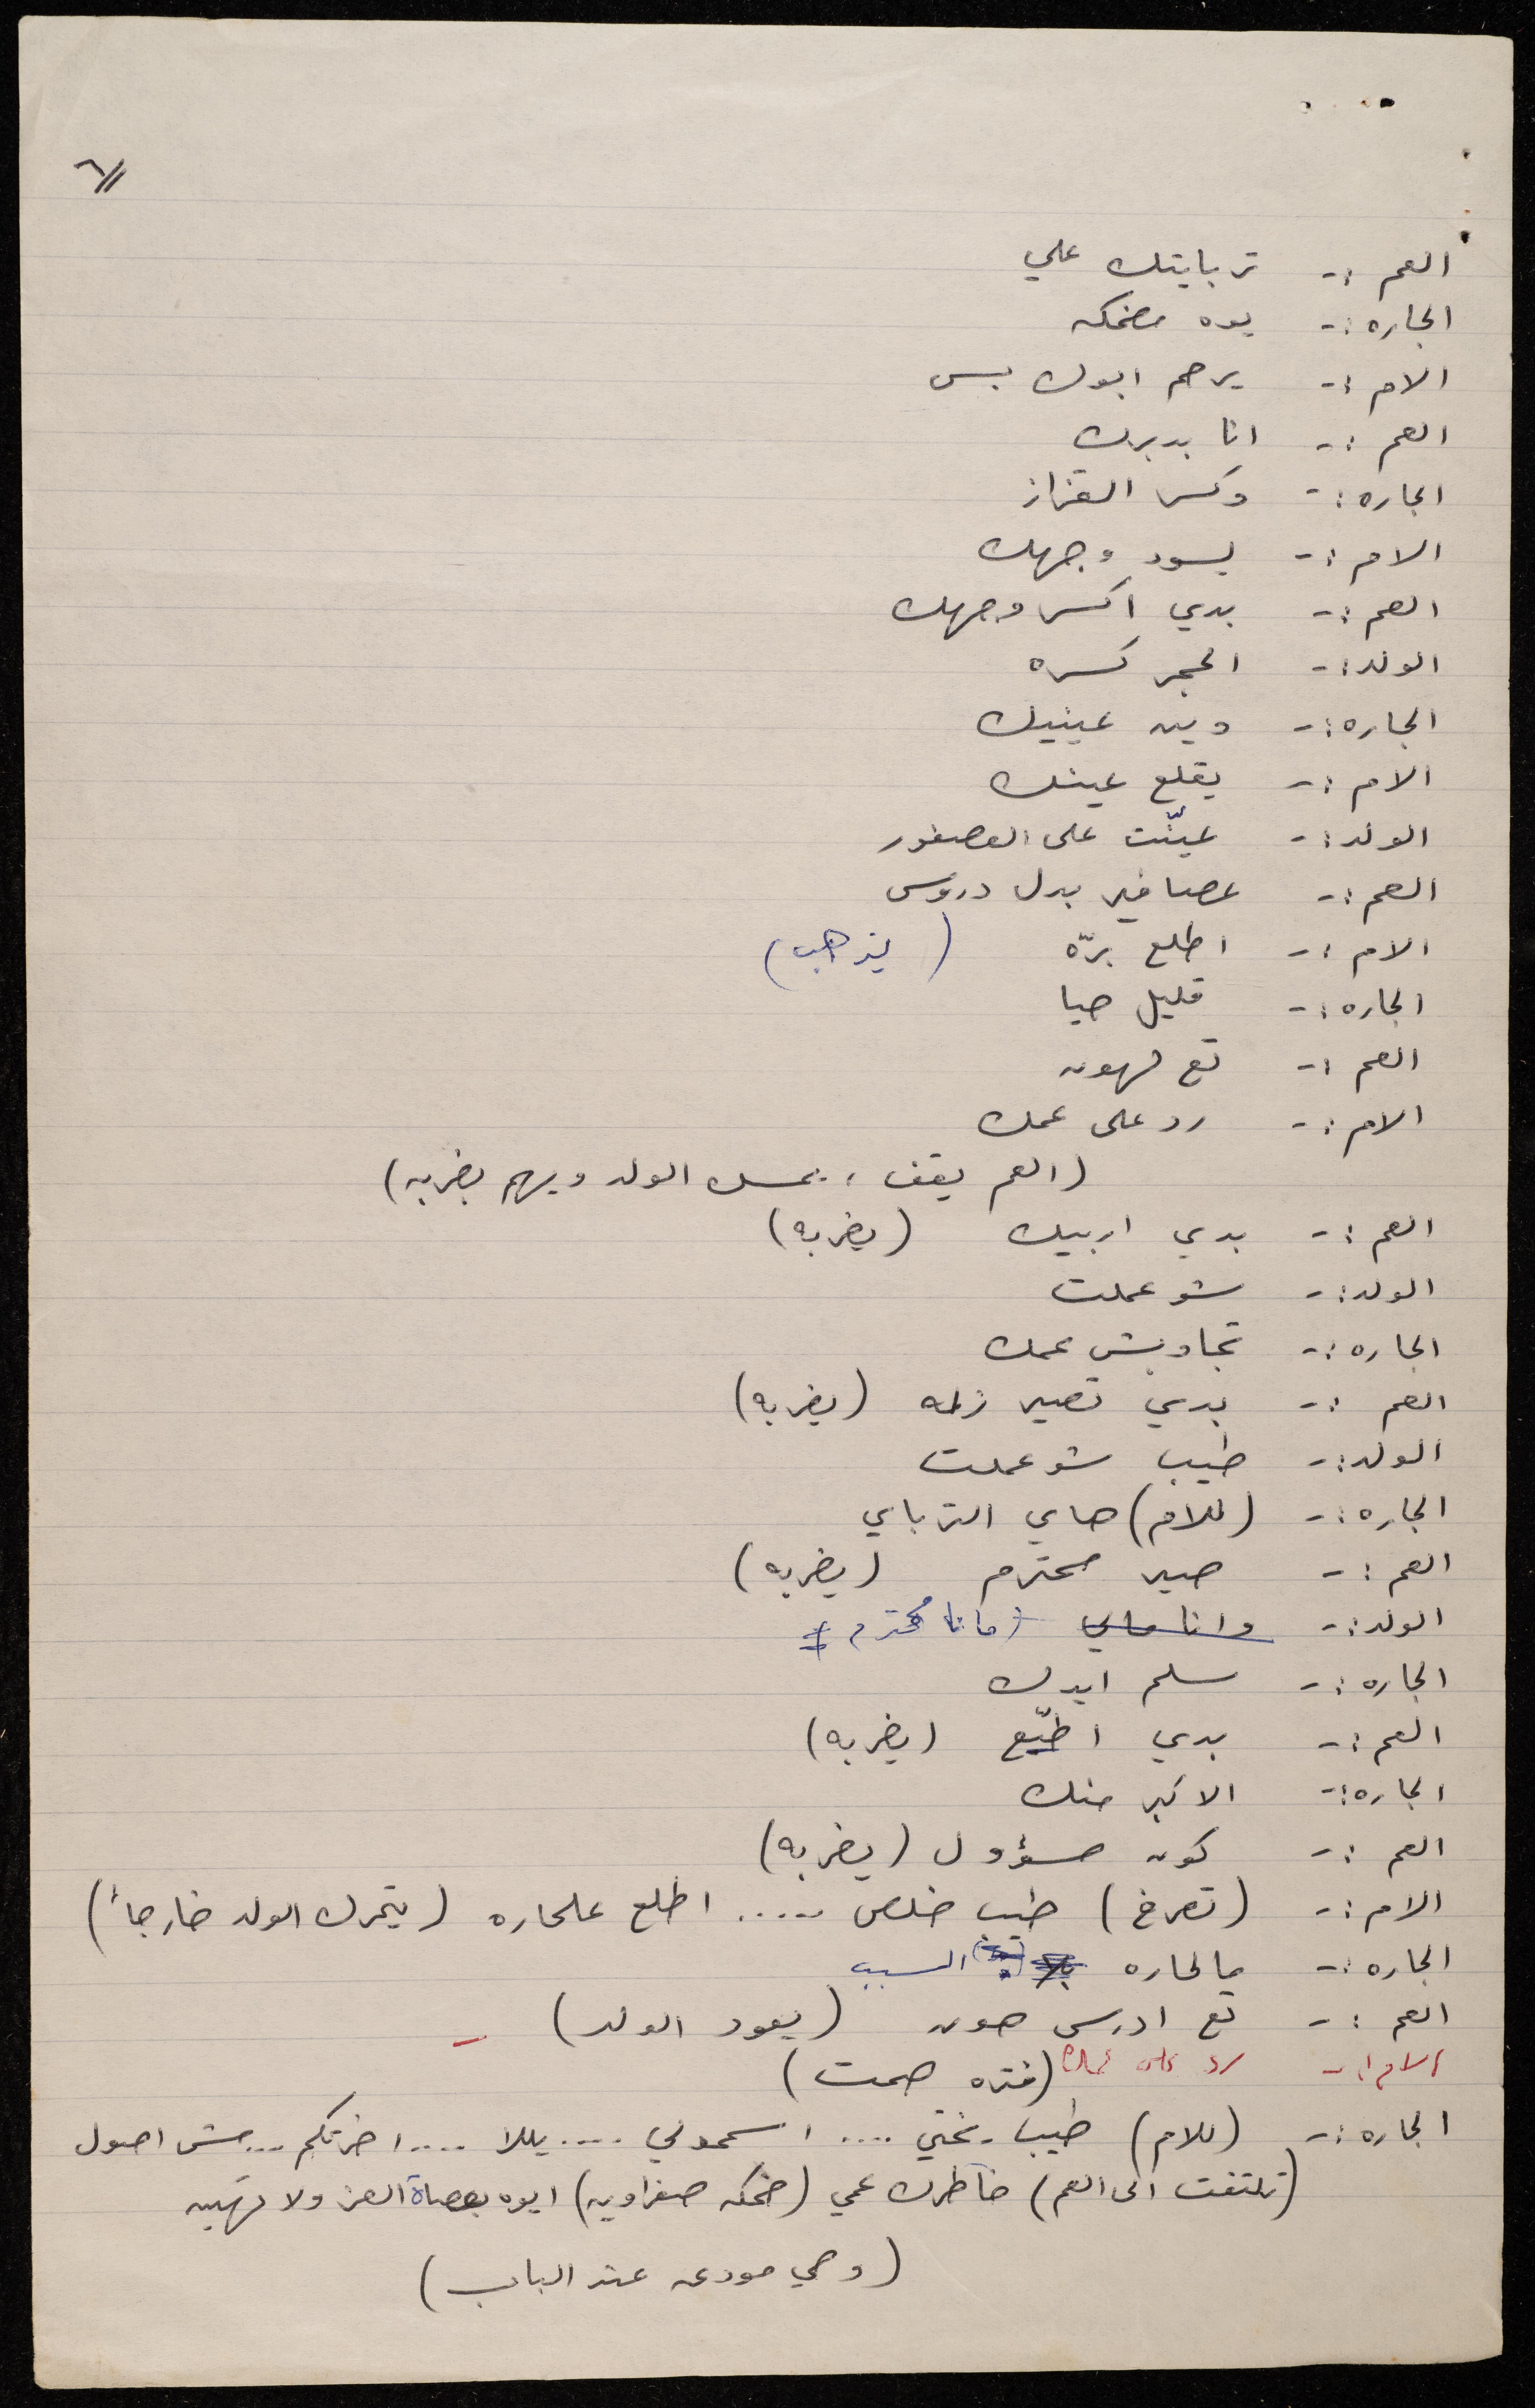 ٦//
العم :- تربايتك علي
الجاره :- يوه مضحكه
الام :- يرحم ابوك بس
العم :- انا بدبرك
الجاره :- وكسر القزاز
الام :- يسود وجهك
العم :- بدي اكسر وجهك
الولد :- الحجر كسره
الجاره :- وين عينيك
الام :- يقلع عينك
الولد :- عيّنت على العصفور
العم :- عصافير بدل دروس
الام :- اطلع برّه ( يذهب )
الجاره :- قليل حيا
العم :- تع لهون
الام :- رد على عمك
( العم يقف ، يمسك الولد ويهم بضربه )
العم :- بدي اربيك ( يضربه )
الولد :- شو عملت
الجاره :- تجاوبش عمك
العم :- بدي تصير زلمه ( يضربه )
الولد :- طيب شو عملت
الجاره :- ( للام ) هاي الترباي
العم :- صير محترم ( يضربه )
الولد :- وانا مالي ( مانا محترم )
الجاره :- سلم ايدك
العم :- بدي اطيّع ( يضربه )
الجاره :- الاكبر منك
العم :- كون مسؤول ( يضربه )
الام :- ( تصرخ ) طيب خلص ..... اطلع علحاره ( يتحرك الولد خارجاً )
الجاره :- مالحاره السبب
العم :- تع ادرس هون ( يعود الولد ) -
الام :- رد على عمك ( فتره صمت )
الجاره :- ( للام ) طيب يختي .... اسمحولي .... يللا .... اخرتكم ... مش اصول
( تلتفت الى العم ) خاطرك عمي ( ضحكه صفراويه ) ايوه بعصاة العز ولا تهينه
( وهي مودعه عند الباب )